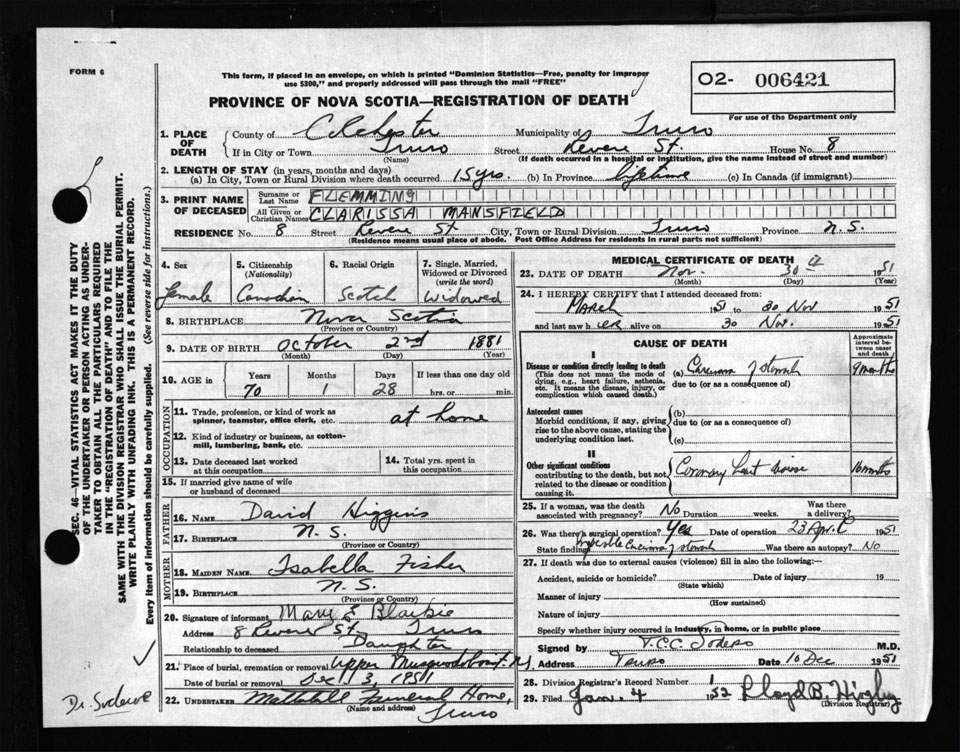 FORM 6
This form, if placed in an envelope, on which is printed "Dominion Statistics—Free, penalty for improper
use $300," and properly addressed will pass through the mail "FREE"
02- 006421
For use of the Department only
PROVINCE OF NOVA SCOTIA—REGISTRATION OF DEATH
1. PLACE OF DEATH
County of Colchester Municipality of Truro
If in City or Town Truro Street Revere St. House No. 8
(Name) (If death occurred in a hospital or institution, give the name instead of street and number)
2. LENGTH OF STAY (in years, months and days)
(a) In City, Town or Rural Division where death occurred 15 yrs. (b) In Province lifetime (c) In Canada (if immigrant)
3. PRINT NAME OF DECEASED
Surname or Last Name FLEMMING
All Given or Christian Names CLARISSA MANSFIELD
RESIDENCE No. 8 Street Revere St City, Town or Rural Division Truro Province N.S.
(Residence means usual place of abode. Post Office Address for residents in rural parts not sufficient)
4. Sex female
5. Citizenship (Nationality) Canadian
6. Racial Origin Scotch
7. Single, Married, Widowed or Divorced (write the word) Widowed
8. BIRTHPLACE Nova Scotia
(Province or Country)
9. DATE OF BIRTH October 2nd 1881
(Month) (Day) (Year)
10. AGE in Years Months Days If less than one day old
70 1 28 hrs. or min.
OCCUPATION
11. Trade, profession, or kind of work as
spinner, teamster, office clerk, etc. at home
12. Kind of industry or business, as cotton-
mill, lumbering, bank, etc.
13. Date deceased last worked
at this occupation
14. Total yrs. spent in
this occupation
15. If married give name of wife
or husband of deceased
FATHER
16. NAME David Higgins
17. BIRTHPLACE N.S.
(Province or Country)
MOTHER
18. MAIDEN NAME Isabella Fisher
19. BIRTHPLACE N.S.
(Province or Country)
20. Signature of informant Mary E Blaikie
Address 8 Revere St. Truro
Relationship to deceased Daughter
21. Place of burial, cremation or removal Upper Musquodoboit N.S.
Date of burial or removal Dec 3, 1951
22. UNDERTAKER Mattatall Funeral Home,
(Name and address) Truro
MEDICAL CERTIFICATE OF DEATH
23. DATE OF DEATH Nov. 30 1951
(Month) (Day) (Year)
24. I HEREBY CERTIFY that I attended deceased from:
March 1951 to 30 Nov 1951
and last saw her alive on 30 Nov. 1951
CAUSE OF DEATH
Approximate interval between onset and death
I
Disease or condition directly leading to death
(This does not mean the mode of
dying, e.g., heart failure, asthenia,
etc. It means the disease, injury, or
complication which caused death.)
(a) Carcinoma of stomach 9 months
due to (or as a consequence of)
Antecedent causes
Morbid conditions, if any, giving
rise to the above cause, stating the
underlying condition last.
(b)
due to (or as a consequence of)
(c)
II
Other significant conditions
contributing to the death, but not
related to the disease or condition
causing it.
Coronary heart disease months
25. If a woman, was the death
associated with pregnancy? No Duration weeks. Was there a delivery?
26. Was there a surgical operation? Yes Date of operation 23 April 1951
State findings Inoperable Carcinoma of stomach Was there an autopsy? No
27. If death was due to external causes (violence) fill in also the following:—
Accident, suicide or homicide? Date of injury 19
(State which)
Manner of injury
(How sustained)
Nature of injury
Specify whether injury occurred in industry, in home, or in public place
Signed by M.D.
Address Truro Date 10 Dec 1951
28. Division Registrar's Record Number 1
29. Filed Jan. 4 1952 Lloyd B.
(Division Registrar)
SEC. 46—VITAL STATISTICS ACT MAKES IT THE DUTY
OF THE UNDERTAKER OR PERSON ACTING AS UNDER-
TAKER TO OBTAIN ALL THE PARTICULARS REQUIRED
IN THE "REGISTRATION OF DEATH" AND TO FILE THE
SAME WITH THE DIVISION REGISTRAR WHO SHALL ISSUE THE BURIAL PERMIT.
WRITE PLAINLY WITH UNFADING INK. THIS IS A PERMANENT RECORD.
Every item of information should be carefully supplied. (See reverse side for instructions.)
Dr.